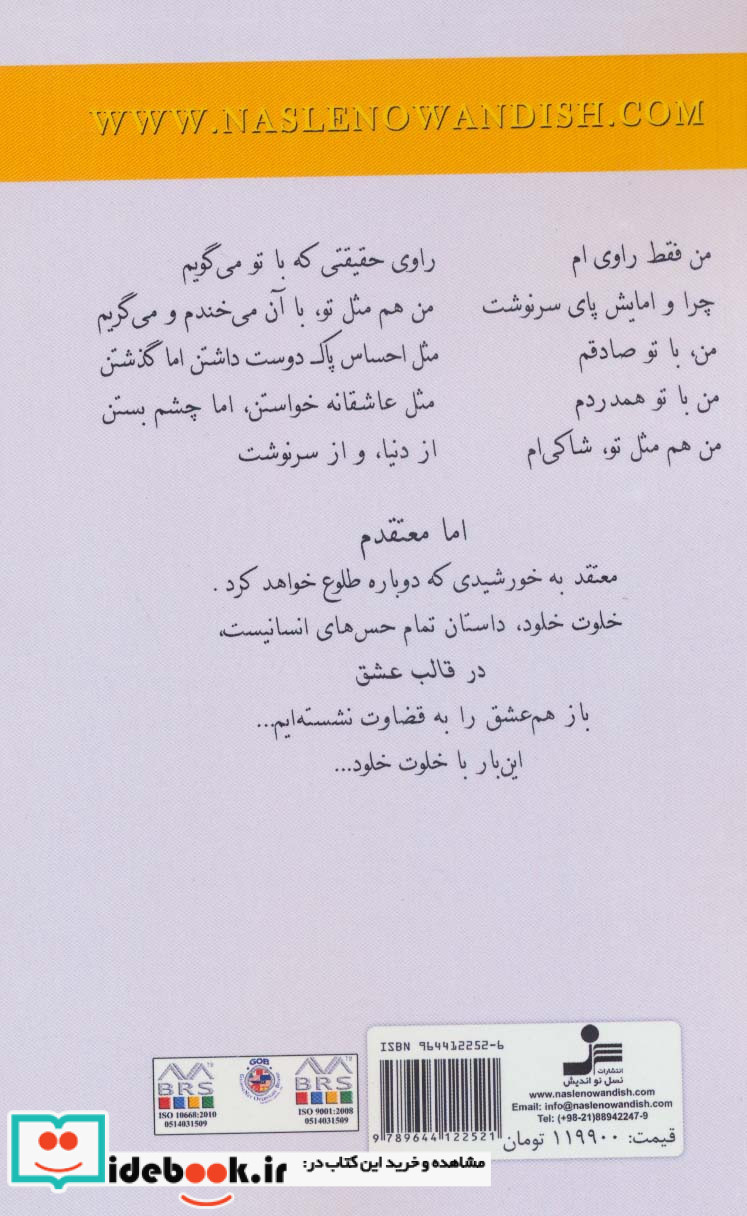 WWW.NASLENOWANDISH.COM
من فقط راوی ام راوی حقیقتی که با تو می‌گویم
چرا و امایش پای سرنوشت من هم مثل تو، با آن می‌خندم و می‌گریم
من، با تو صادقم مثل احساس پاک دوست داشتن اما گذشتن
من با تو همدردم مثل عاشقانه خواستن، اما چشم بستن
من هم مثل تو، شاکی‌ام از دنیا، و از سرنوشت
اما معتقدم
معتقد به خورشیدی که دوباره طلوع خواهد کرد .
خلوت خلود، داستان تمام حس‌های انسانیست،
در قالب عشق
باز هم عشق را به قضاوت نشسته‌ایم...
این‌بار با خلوت خلود...
ISBN 964412252-6
9 789644 122521
انتشارات
نسل نو اندیش
www.naslenowandish.com
Email: info@naslenowandish.com
Tel: (+98-21)88942247-9
قیمت: ۱۱۹۹۰۰ تومان
BRS
ISO 10668:2010
0514031509
GOB
BRS
ISO 9001:2008
0514031509
مشاهده و خرید این کتاب در:
idebook.ir